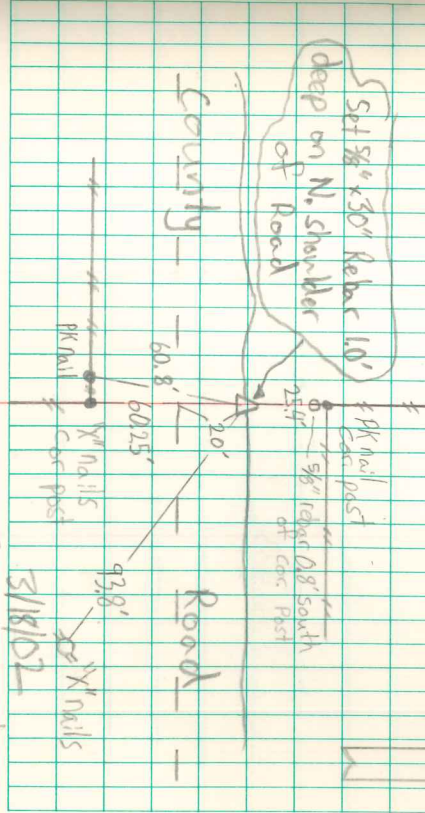 Set 5/8" x 30" Rebar 1.0'
deep on N. shoulder
of Road
PK nail
cor. post
25.4'
5/8" rebar 0.8' south
of cor. post
County Road
20'
60.8'
60.25'
93.8'
PK nail
"X" nails
cor post
"X" nails
3/18/02